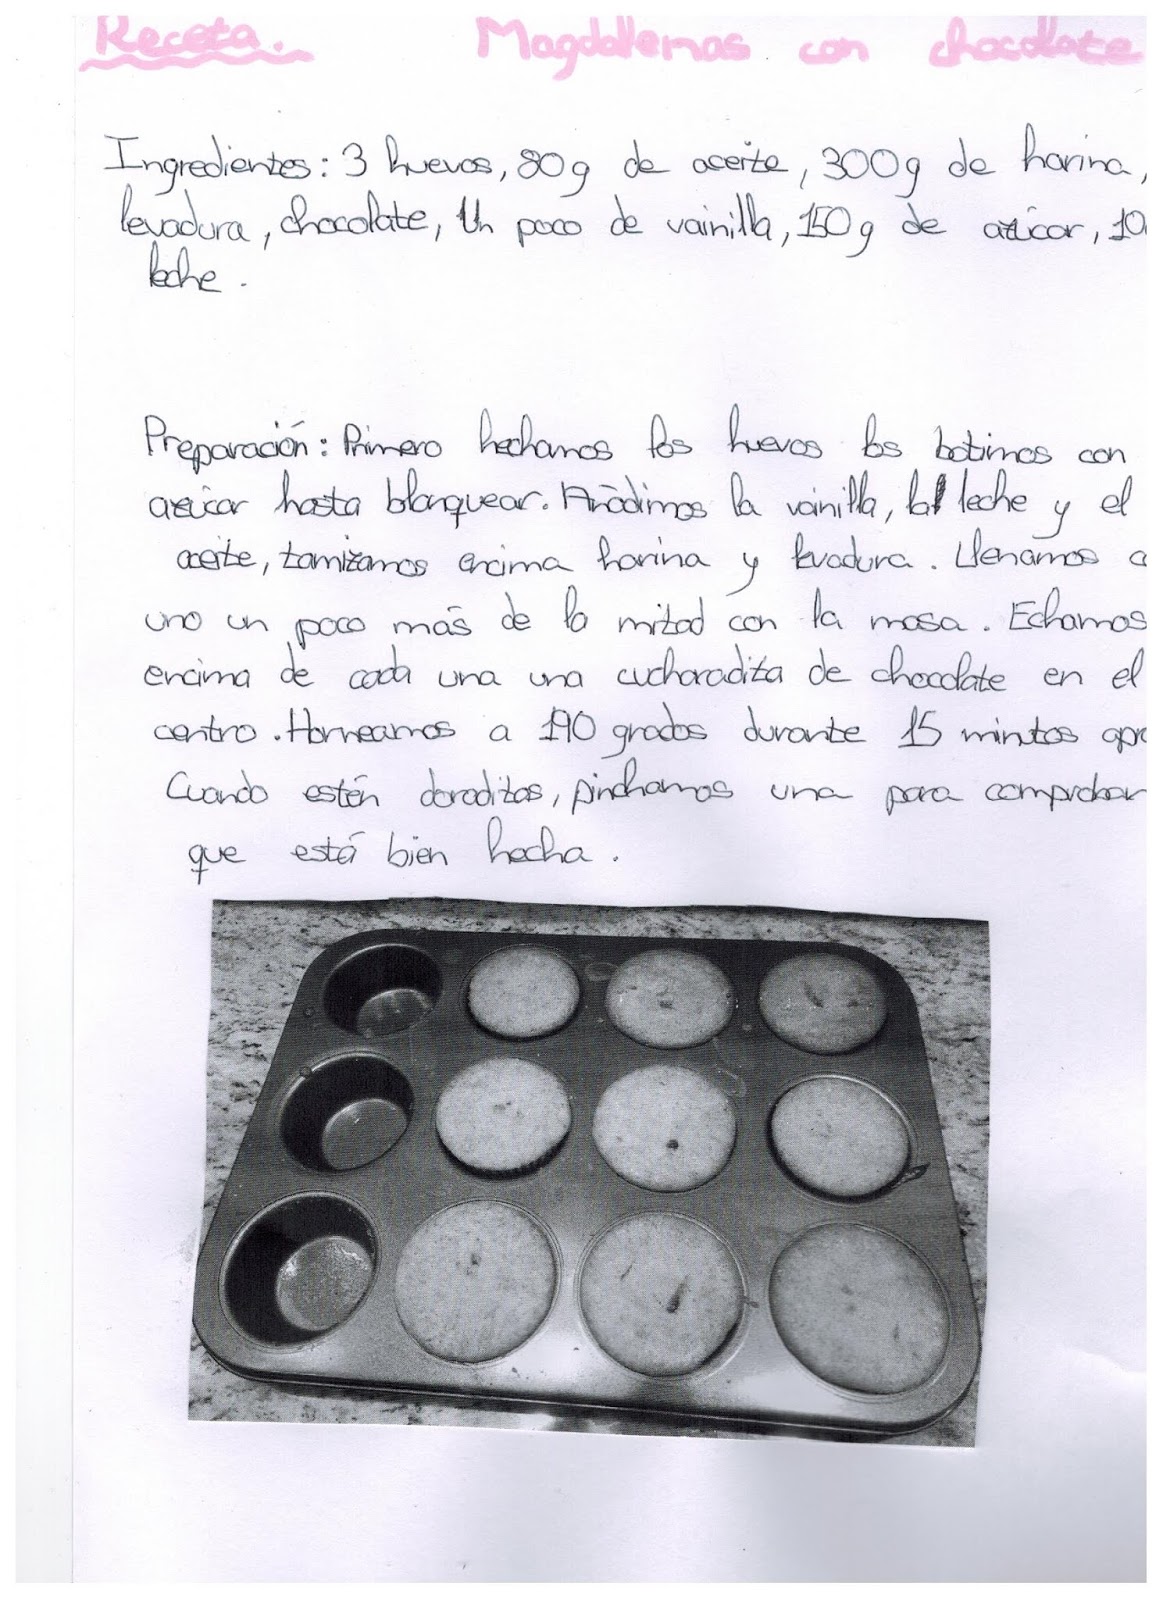 Receta. Magdallenas con chocolate
Ingredientes: 3 huevos, 80g de aceite, 300g de harina,
levadura, chocolate, Un poco de vainilla, 150g de azúcar, 10
leche.
Preparación: Primero hechamos los huevos los batimos con
azúcar hasta blanquear. Añadimos la vainilla, la leche y el
aceite, tamizamos encima harina y levadura. Llenamos c
uno un poco más de la mitad con la masa. Echamos
encima de cada una una cucharadita de chocolate en el
centro. Horneamos a 190 grados durante 15 mintos apro
Cuando estén doraditas, pinchamos una para comprobar
que está bien hecha.